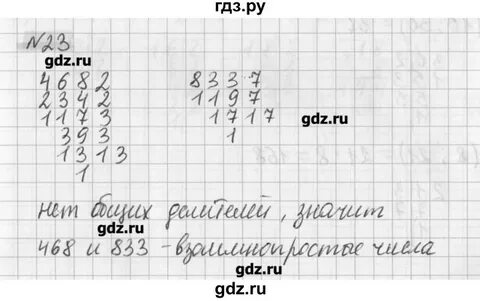 гдз.ру
№23
gdz.ru gdz.ru
468 2 833 7
234 2 119 7
117 3 17 17
39 3 1
13 13
1
gdz.ru gdz.ru
нет общих делителей, значит
468 и 833 - взаимнопростые числа
gdz.ru gdz.ru